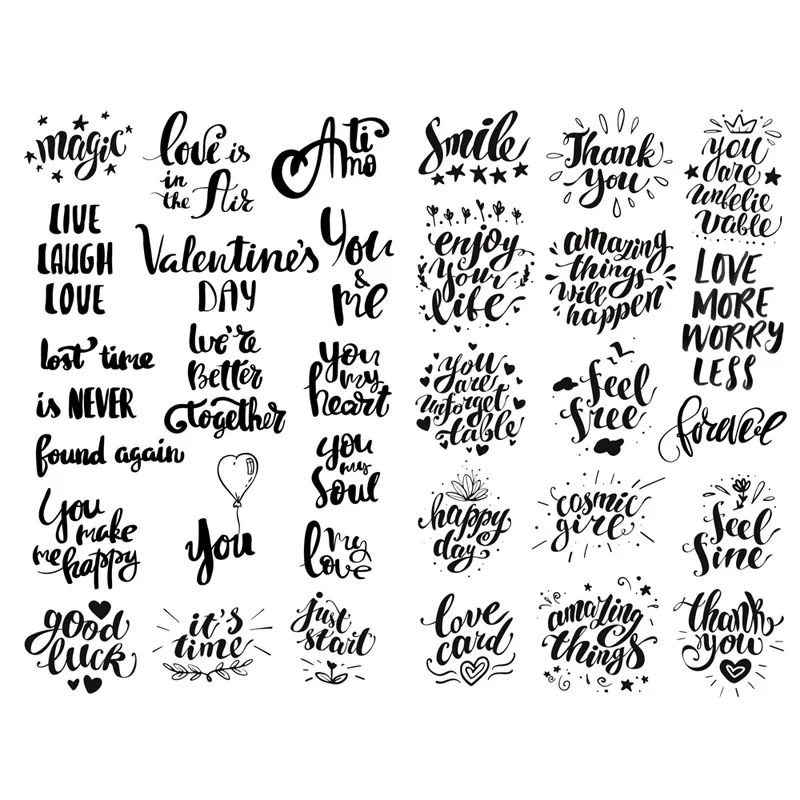 magic
love is
in
the Air
Ati
Amo
LIVE
LAUGH
LOVE
Valentine's
DAY
You
&
me
lost time
is NEVER
found again
we're
Better
together
you
my
heart
you
my
soul
You
make
me happy
you
my
love
good
luck
it's
time
just
start
Smile
Thank
you
you
are
unbelie
vable
enjoy
your
life
amazing
things
will
happen
LOVE
MORE
WORRY
LESS
you
are
unforget
table
feel
free
forever
happy
day
cosmic
girl
feel
fine
love
card
amazing
things
thank
you